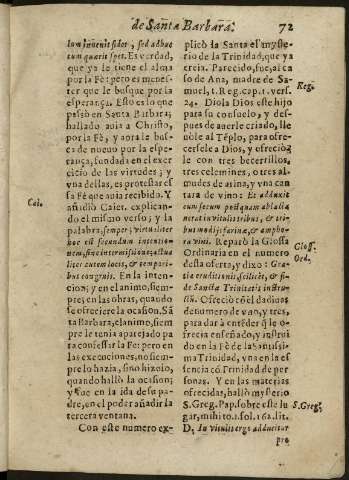 de Santa Barbara.
72
lum inuenit fides, sed adhuc
tum quærit spes. Es verdad,
que ya le tiene el alma
por la Fè; pero es menes-
ter que le busque por la
esperança. Esto es lo que
passò en Santa Barbara;
hallado auia a Christo,
por la Fè, y aora le bus-
ca de nueuo por la espe-
rança, fundada en el exer
cicio de las virtudes; y
vna dellas, es protestar es
sa Fè que auia recibido. Y
Cai.
añidiò Caiet. explican-
do el mismo verso; y la
palabra, semper; virtualiter
hoc est secundum intentio-
nem, sine intermissione; actua
liter autem locis, & tempori-
bus congruis. En la inten-
cion; y en el animo, siem-
pre; en las obras, quando
se ofreciere la ocasion. Sã
ta Barbara, el animo, siem
pre le tenia aparejado pa
ra confessar la Fè: pero en
las execuciones, no siem-
pre lo hazia, sino hizolo,
quando hallò la ocasion;
y fue en la ida de su pa-
dre, en el poder añadir la
tercera ventana.
Con este numero ex-
plicò la Santa el myste-
rio de la Trinidad, que ya
creia. Parecido, fue, al ca
so de Ana, madre de Sa-
muel, 1. Reg. cap. 1. vers.
Reg.
24. Diola Dios este hijo
para su consuelo, y des-
pues de auerle criado, lle
uole al Tẽplo, para ofre-
cersele a Dios, y ofreciòle
con tres becerrillos,
tres celemines, o tres al-
mudes de arina, y vna can
tara de vino: Et adduxit
eum secum postquam ablacta
uerat in vitulis tribus, & tri-
bus modijs farinæ, & ampho-
ra vini. Reparò la Glossa
Gloss.
Ordinaria en el numero
Ord.
desta oferta, y dixo: Gra-
tia eruditionis, scilicet, & fi-
de Sanctæ Trinitatis instru-
ctum. Ofreciò cõ el dadiuas
de numero de vno, y tres,
para dar à entẽder q̃ le o-
frecia enseñado, y instrui
do en la Fè de la Santissi-
ma Trinidad, vna en la es
sencia cõ Trinidad de per
sonas. Y en las materias
ofrecidas, hallò mysterio
S. Greg. Pap. sobre este lu
S. Greg.
gar, mihi to. 1. fol. 162. lit.
D. In vitulis ergo adducitur
pro